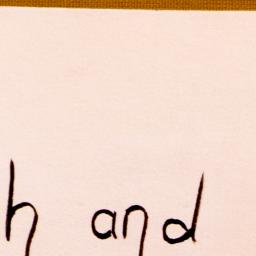 h and